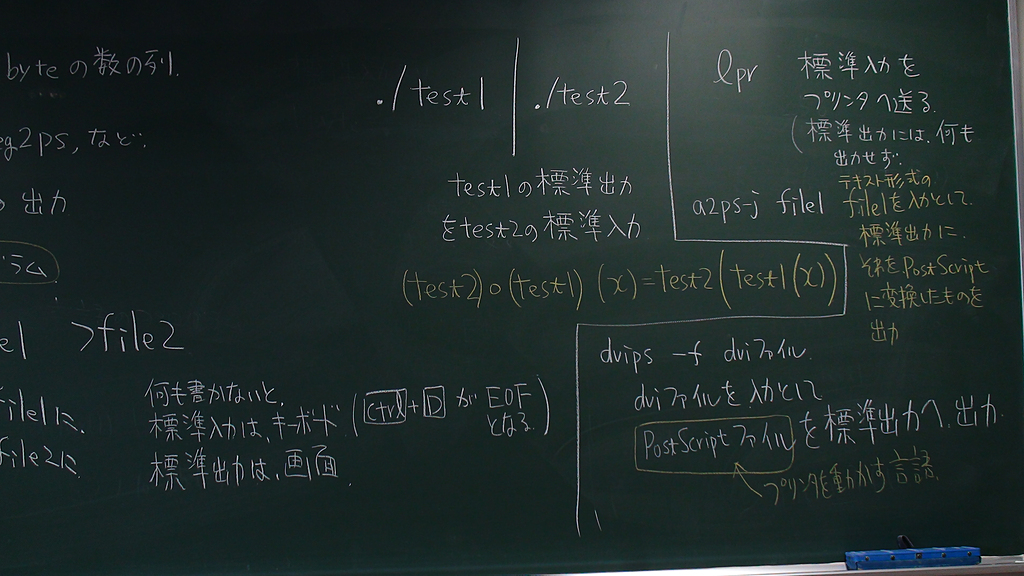 byteの数の列.
eg2ps, など.
出力
ラム
>file2
file1に.
file2に
何も書かないと,
標準入力は, キーボード
標準出力は, 画面.
(Ctrl+D が EOF
となる.)
./test1 | ./test2
test1の標準出力
をtest2の標準入力
(test2)o(test1) (x)=test2(test1(x))
lpr 標準入力を
プリンタへ送る.
(標準出力には, 何も
出力せず.
a2ps-j file1
テキスト形式の
file1を入力として.
標準出力に.
それを, PostScript
に変換したものを
出力
dvips -f dviファイル.
dviファイルを入力として
PostScriptファイルを標準出力へ, 出力.
プリンタを動かす言語.